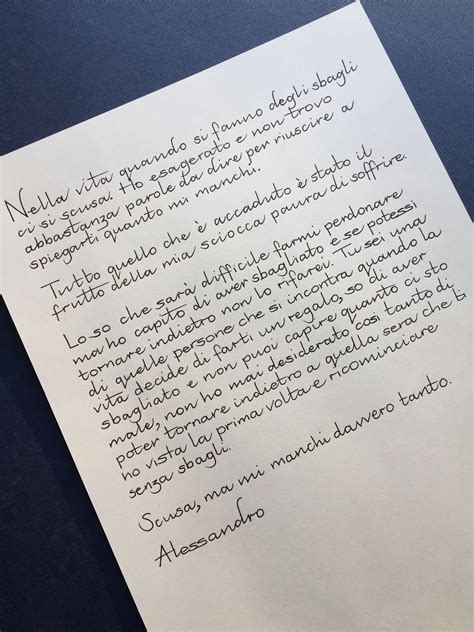 Nella vita quando si fanno degli sbagli
ci si scusa. Ho esagerato e non trovo
abbastanza parole da dire per riuscire a
spiegarti quanto mi manchi.
Tutto quello che è accaduto è stato il
frutto della mia sciocca paura di soffrire.
Lo so che sarà difficile farmi perdonare
ma ho capito di aver sbagliato e se potessi
tornare indietro non lo rifarei. Tu sei una
di quelle persone che si incontra quando la
vita decide di farti un regalo, so di aver
sbagliato e non puoi capire quanto ci sto
male, non ho mai desiderato così tanto di
poter tornare indietro a quella sera che ti
ho vista la prima volta e ricominciare
senza sbagli.
Scusa, ma mi manchi davvero tanto.
Alessandro